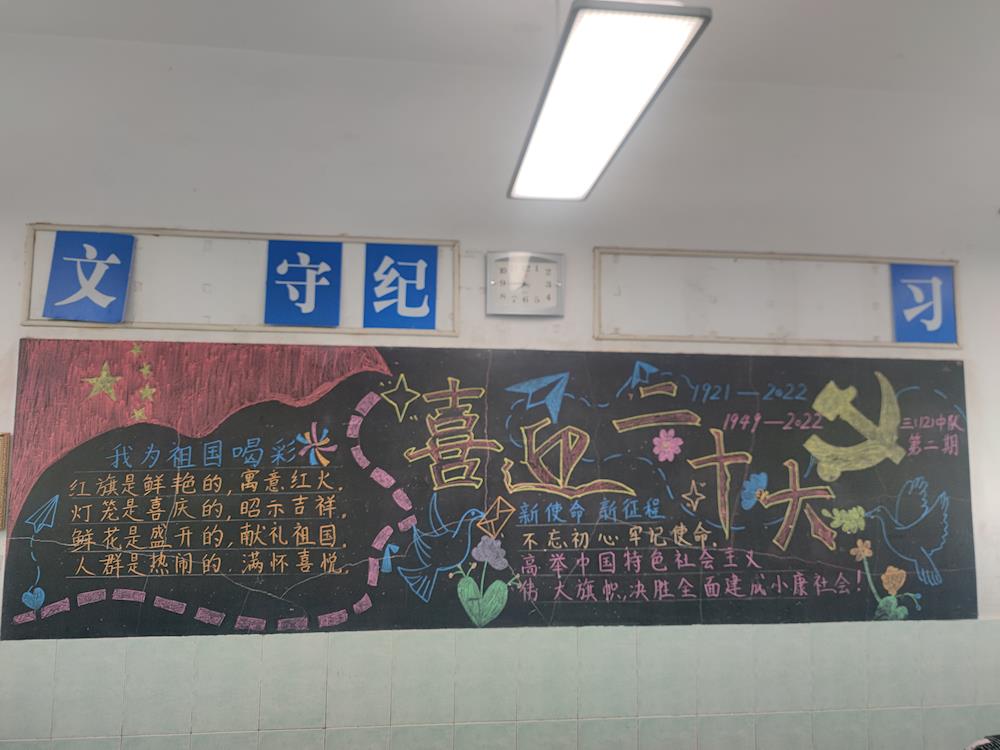 文 守 纪
习
10 12 1 2
9 3
8 7 6 5 4
我为祖国喝彩
红旗是鲜艳的，寓意红火。
灯笼是喜庆的，昭示吉祥。
鲜花是盛开的，献礼祖国。
人群是热闹的．满怀喜悦。
喜迎二十大
1921—2022
1949—2022
三(12)中队
第二期
新使命 新征程
不忘初心 牢记使命．
高举中国特色社会主义
伟大旗帜，决胜全面建成小康社会！